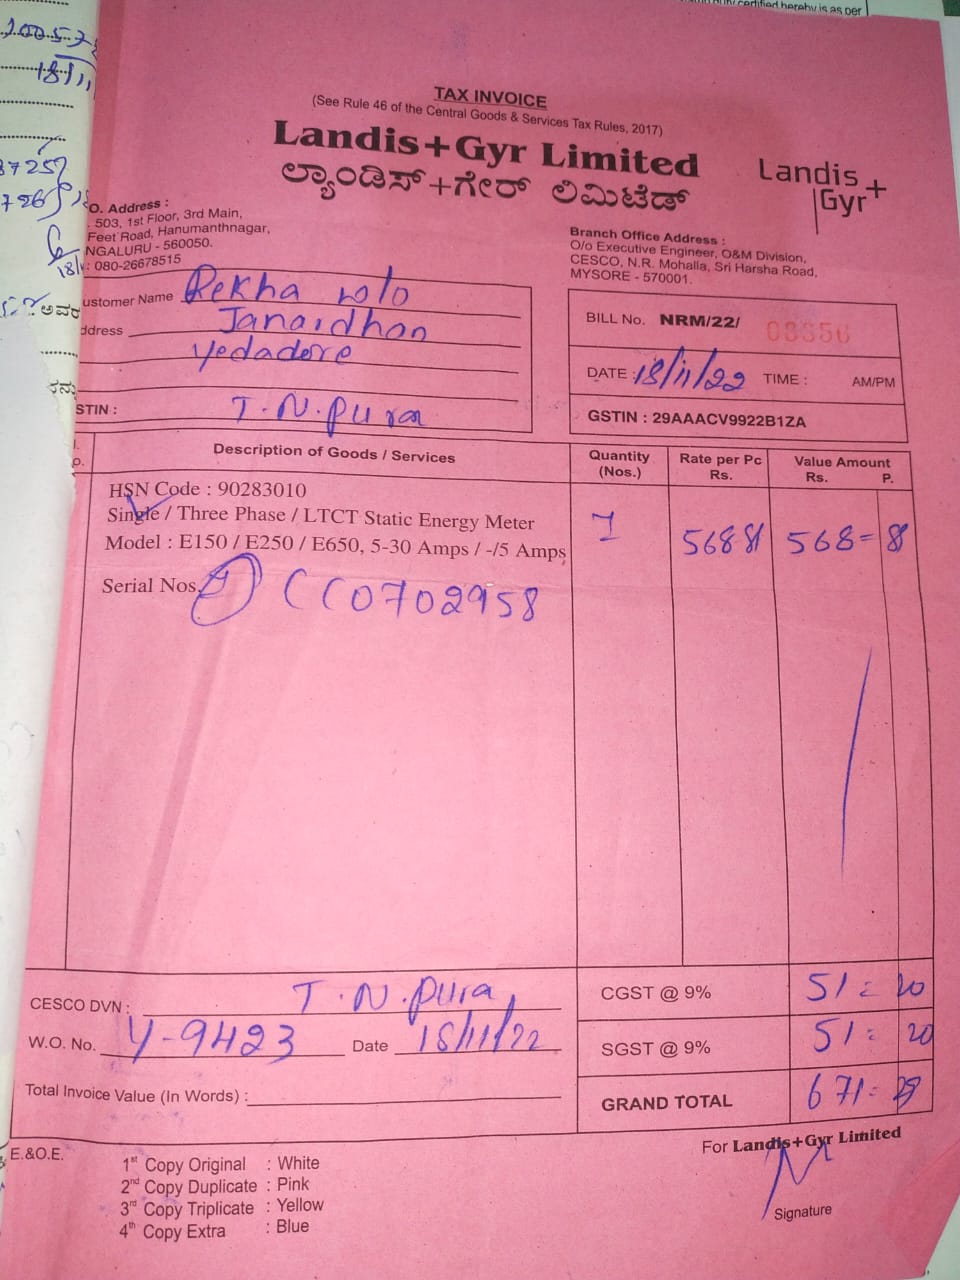 duty certified hereby is as per
TAX INVOICE
(See Rule 46 of the Central Goods & Services Tax Rules, 2017)
Landis+Gyr Limited
ಲ್ಯಾಂಡಿಸ್+ಗೇರ್ ಲಿಮಿಟೆಡ್
Landis+
Gyr
O. Address :
503, 1st Floor, 3rd Main,
Feet Road, Hanumanthnagar,
NGALURU - 560050.
: 080-26678515
Branch Office Address :
O/o Executive Engineer, O&M Division,
CESCO, N.R. Mohalla, Sri Harsha Road,
MYSORE - 570001.
ustomer Name Rekha w/o
ddress Janardhan
Yedadore
STIN : T.N.Pura
BILL No. NRM/22/ 03356
DATE : 18/11/22 TIME : AM/PM
GSTIN : 29AAACV9922B1ZA
Description of Goods / Services Quantity (Nos.) Rate per Pc Rs. Value Amount Rs. P.
HSN Code : 90283010
Single / Three Phase / LTCT Static Energy Meter 1 568 81 568= 8
Model : E150 / E250 / E650, 5-30 Amps / -/5 Amps
Serial Nos. CC0702958
CESCO DVN : T.N.Pura
W.O. No. Y-9423 Date 18/11/22
Total Invoice Value (In Words) :
CGST @ 9% 51= 20
SGST @ 9% 51= 20
GRAND TOTAL 671=
E.&O.E.
1st Copy Original : White
2nd Copy Duplicate : Pink
3rd Copy Triplicate : Yellow
4th Copy Extra : Blue
For Landis+Gyr Limited
Signature